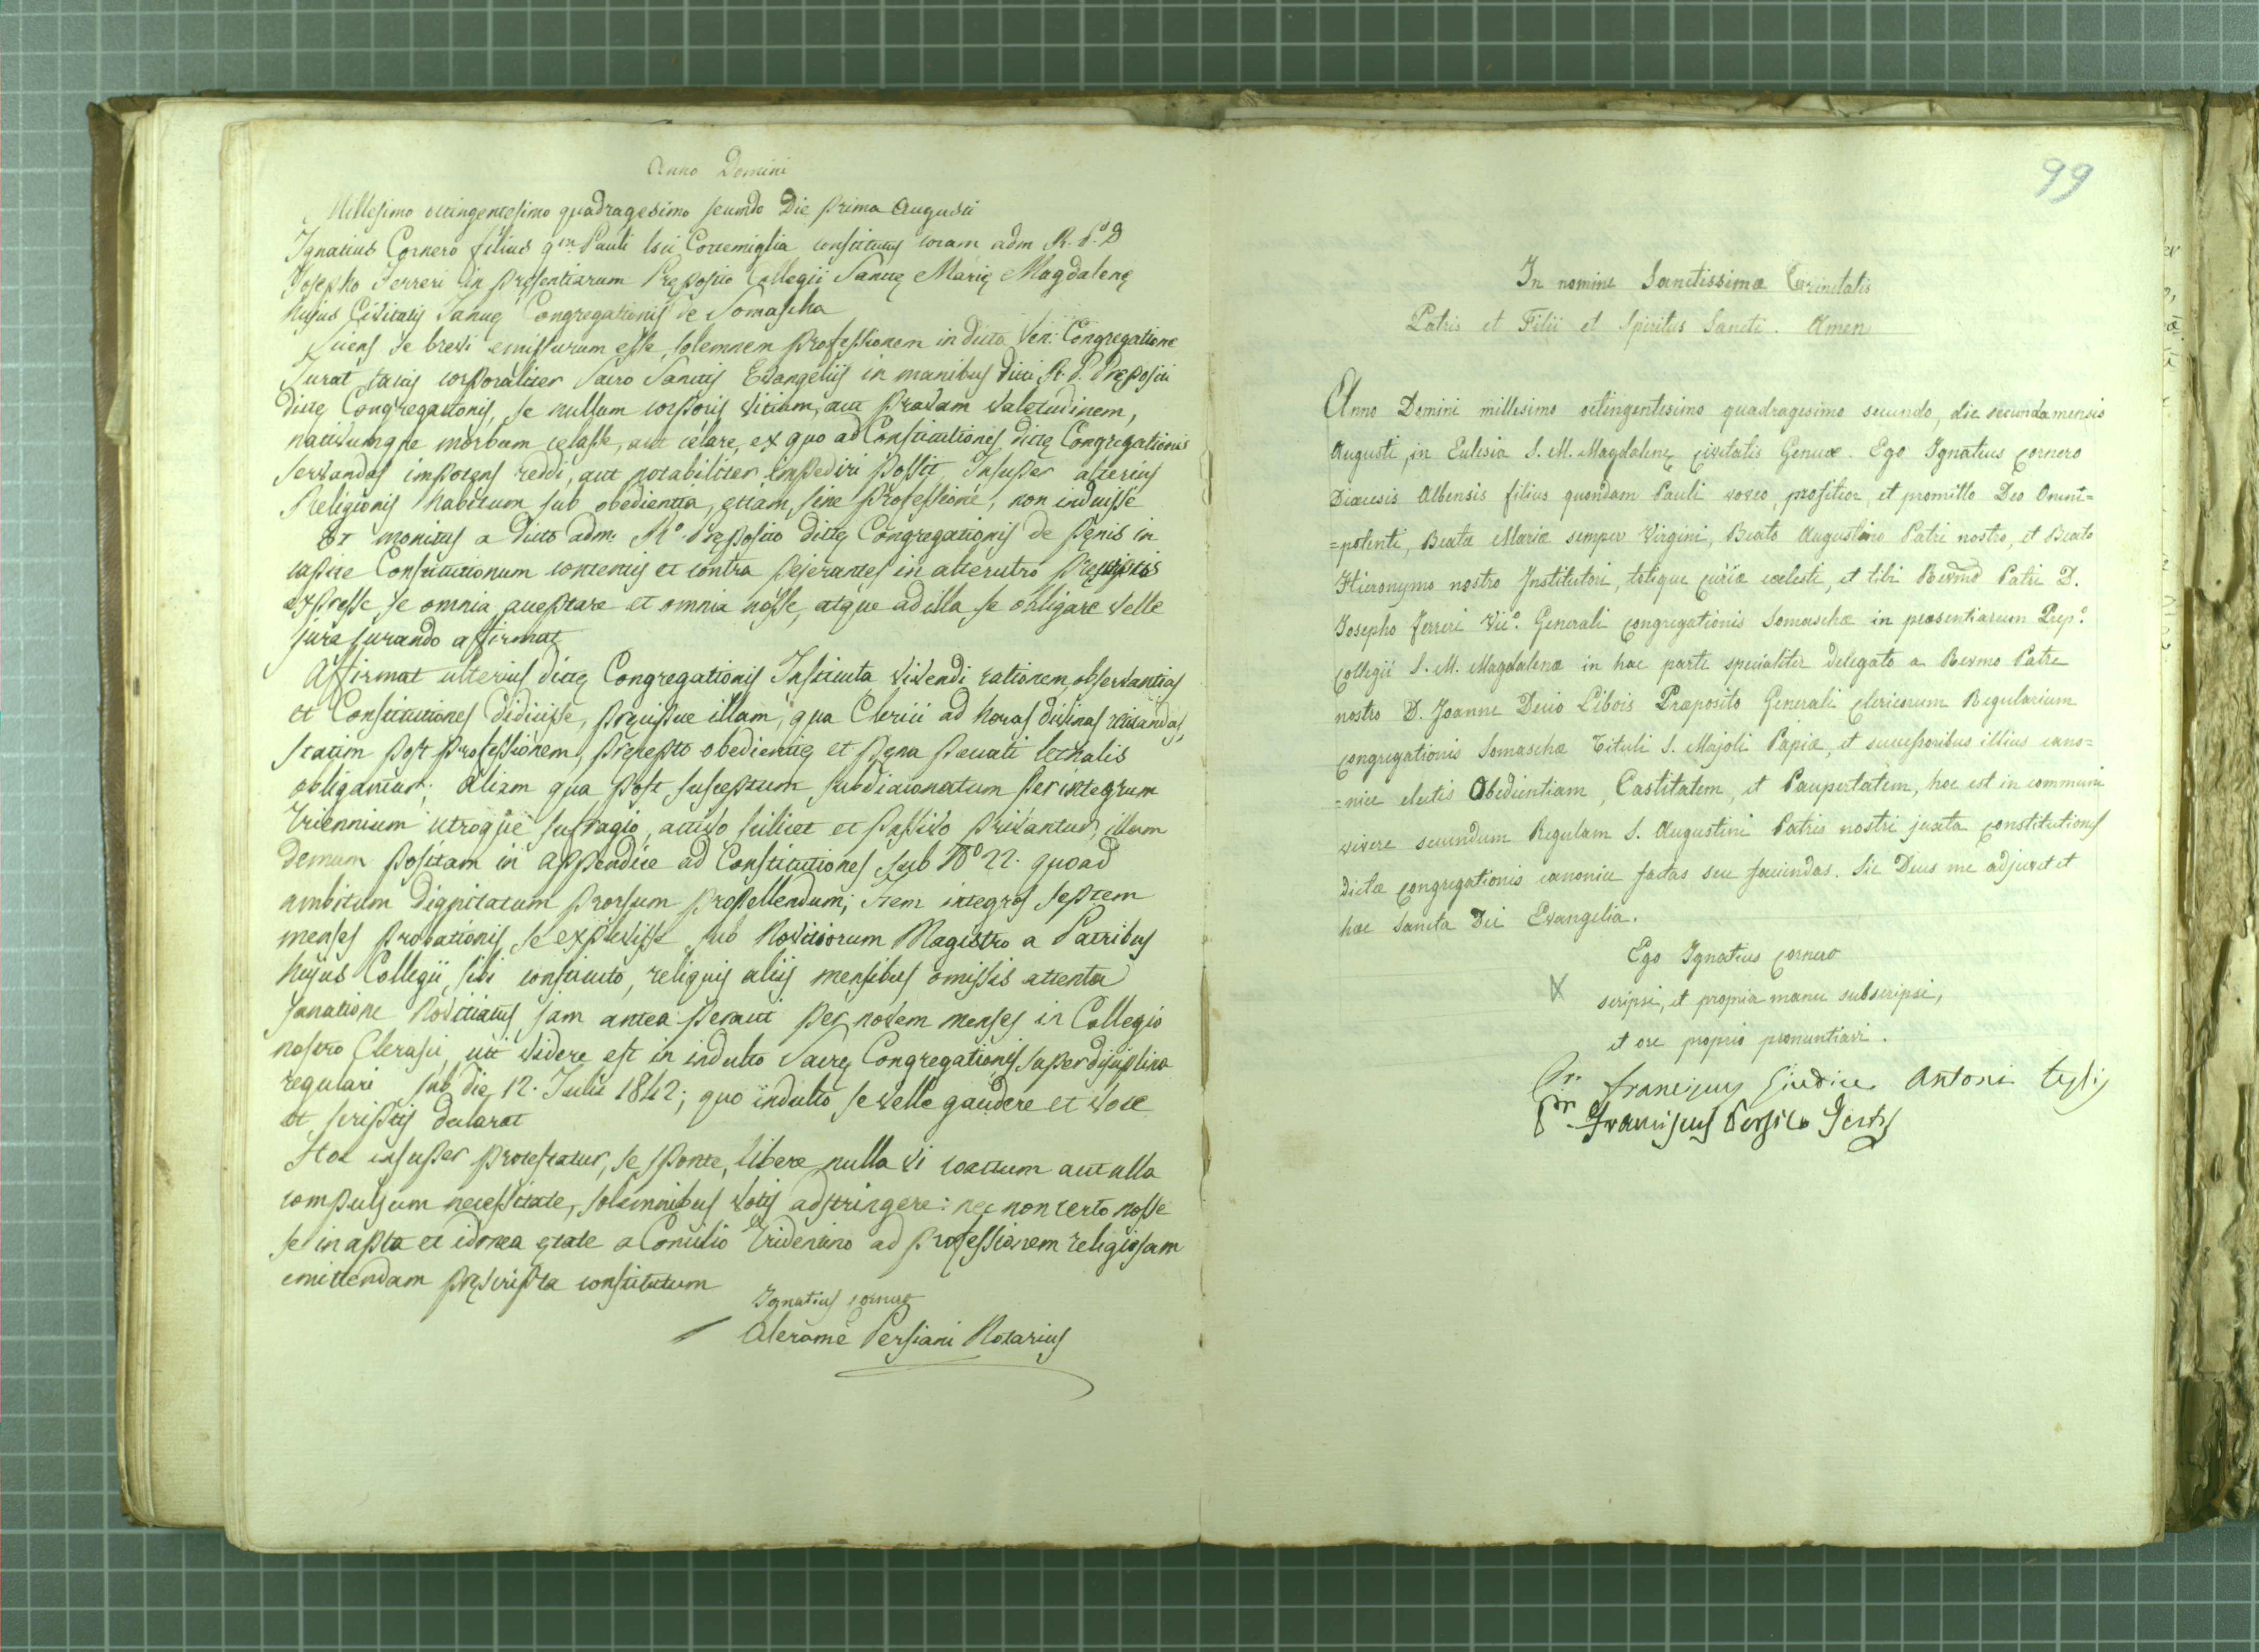 Anno Domini
Millesimo octingentesimo quadragesimo secundo Die prima Augusti
Ignatius Cornero filius qm Pauli loci Cortemiglia constitutus coram adm R. P. D
Josepho Ferreri in presentiarum Pręposito Collegii Sanctę Marię Magdalenę
hujus Civitatis Januę Congregationis de Somascha
Sciens se brevi emissurum esse solemnem professionem in dicta Ven: Congregatione
Jurat tactis corporaliter Sacro Sanctis Evangeliis in manibus dicti R. P. Prępositi
dictę Congregationis, se nullum corporis vitium, aut pravam valetudinem,
nativumque morbum celasse, aut celare, ex quo ad Constitutiones dictę Congregationis
servandas impotens reddi, aut notabiliter impediri possit Insuper alterius
Religionis habitum sub obedientia, etiam sine professione, non induisse
Et monitus a dicto adm: Rº Pręposito dictę Congregationis de pęnis in
capite Constitutionum contentis et contra pejerantes in alterutro pręmissis
expresse se omnia acceptare et omnia nosse, atque ad illa se obligare velle
jure jurando affirmat
Affirmat ulterius dictę Congregationis Instituta vivendi rationem, observantias
et Constitutiones didicisse, pręcipue illam, qua Clerici ad horas divinas recitandas,
statim post professionem, pręcepto obedientię et pęna peccati lethalis
obligantur; Aliam qua post susceptum subdiaconatum per integrum
Triennium utroque sufragio, activo scilicet et passivo privantur; illam
demum positam in appendice ad Constitutiones sub Nº 22. quoad
ambitum dignitatum prorsum propellendum; Item integros septem
menses probationis se explevisse sub Novitiorum Magistro a Patribus
hujus Collegii sibi constituto, reliquis aliis mensibus omissis attenta
sanatione Novitiatus jam antea peracti per novem menses in Collegio
nostro Clerasci, uti videre est in indulto Sacrę Congregationis super disciplina
regulari sub die 12. Julii 1842; quo indulto se velle gaudere et voce
et scriptis declarat
Hoc insuper protestatur, se sponte, libere nulla vi coactum aut ulla
compulsum necessitate, solemnibus votis adstringere: nec non certo nosse
se in apta et idonea ętate a Concilio Tridentino ad professionem religiosam
emittendam pręscripta constitutum
Ignatius Cornero
Alerame Persiani Notarius
99
In nomine Sanctissimæ Trinitatis
Patris et Filii et Spiritus Sancti. Amen
Anno Domini millesimo octingentesimo quadragesimo secundo, die secunda mensis
Augusti, in Eclesia S. M. Magdalenę civitatis Genuæ. Ego Ignatius Cornero
Diœcesis Albensis filius quondam Pauli voveo, profiteor, et promitto Deo Omni=
=potenti, Beatæ Mariæ semper Virgini, Beato Augustino Patri nostro, et Beato
Hieronymo nostro Institutori, totique curiæ cœlesti, et tibi Revmo Patri D.
Josepho Ferreri Vicº. Generali Congregationis Somaschæ in præsentiarum Prep.º
Collegii S. M. Magdalenæ in hac parte specialiter delegato a Revmo Patre
nostro D. Joanne Decio Libois Præposito Generali Clericorum Regularium
Congregationis Somaschæ Tituli S. Majoli Papiæ, et successoribus illius cano=
=nice electis Obedientiam, Castitatem, et Paupertatem, hoc est in communi
vivere secundum Regulam S. Augustini Patris nostri juxta Constitutiones
dictæ Congregationis canonice factas seu faciendas. Sic Deus me adjuvet et
hæc Sancta Dei Evangelia.
Ego Ignatius Cornero
X scripsi, et propria manu subscripsi,
et ore proprio pronuntiavi.
Pr. Franciscus Giudice Antoni Testis
Pr. Franciscus Persico Testis